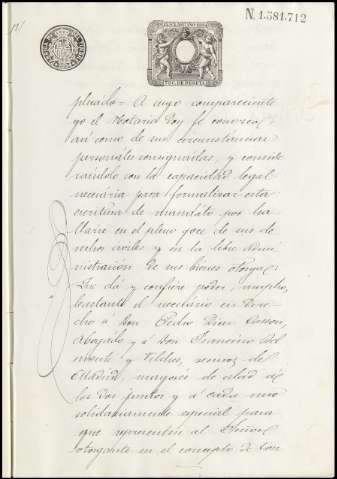 N. 1.581.712
plicado = A cuyo compareciente
yo el Notario Doy fé conozco,
así como de sus circunstancias
personales consignadas, y conside
rándolo con la capacidad legal
necesaria para formalizar esta
escritura de mandato por ha
llarse en el pleno goce de sus de
rechos civiles y en la libre admi
nistración de sus bienes otorga:
Que dá y confiere poder, amplio,
bastante el necesario en Dere
cho á Don Pedro
Abogado y á Don Francisco
y vecinos de
Madrid, mayores de edad á
los dos juntos y á cada uno
solidariamente especial para
que representen al Señor
otorgante en el concepto de